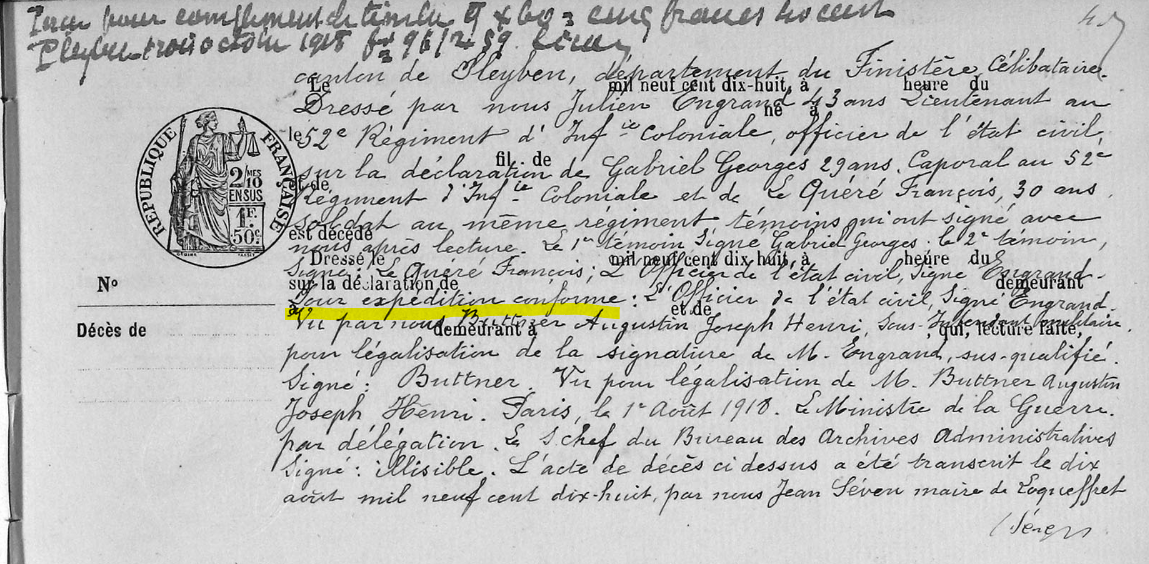 Pleyben trois octobre 1918
canton de Pleyben, département du Finistère, célibataire.
Le mil neuf cent dix-huit, à heure du
Dressé par nous Julien Engrand 43 ans Lieutenant au
né à
le 52e Régiment d'Infie Coloniale, officier de l'état civil,
sur la déclaration de Gabriel Georges 29 ans. Caporal au 52e
fil de
et de
Régiment d'Infie Coloniale et de Le Queré François, 30 ans
soldat au même régiment témoins qui ont signé avec
est décédé
nous après lecture. Le 1er témoin Signé Gabriel Georges. le 2e témoin,
Dressé le mil neuf cent dix-huit à heure du
Signé: Le Queré François; L'Officier de l'état civil, Signé Engrand.
sur la déclaration de demeurant
Pour expédition conforme: L'Officier de l'état civil, Signé Engrand.
à et de
Vu par nous Buttner Augustin Joseph Henri, Sous-Intendant militaire,
demeurant à qui, lecture faite,
pour légalisation de la signature de M. Engrand, sus-qualifié.
Signé: Buttner. Vu pour légalisation de M. Buttner Augustin
Joseph Henri. Paris, le 1er Août 1918. Le Ministre de la Guerre.
par délégation. Le S. chef du Bureau des Archives Administratives
Signé: illisible. L'acte de décès ci dessus a été transcrit le dix
août mil neuf cent dix-huit, par nous Jean Séven maire de Loqueffret
RÉPUBLIQUE FRANÇAISE
2 MES
10
EN SUS
1 F.
50c.
No
Décès de